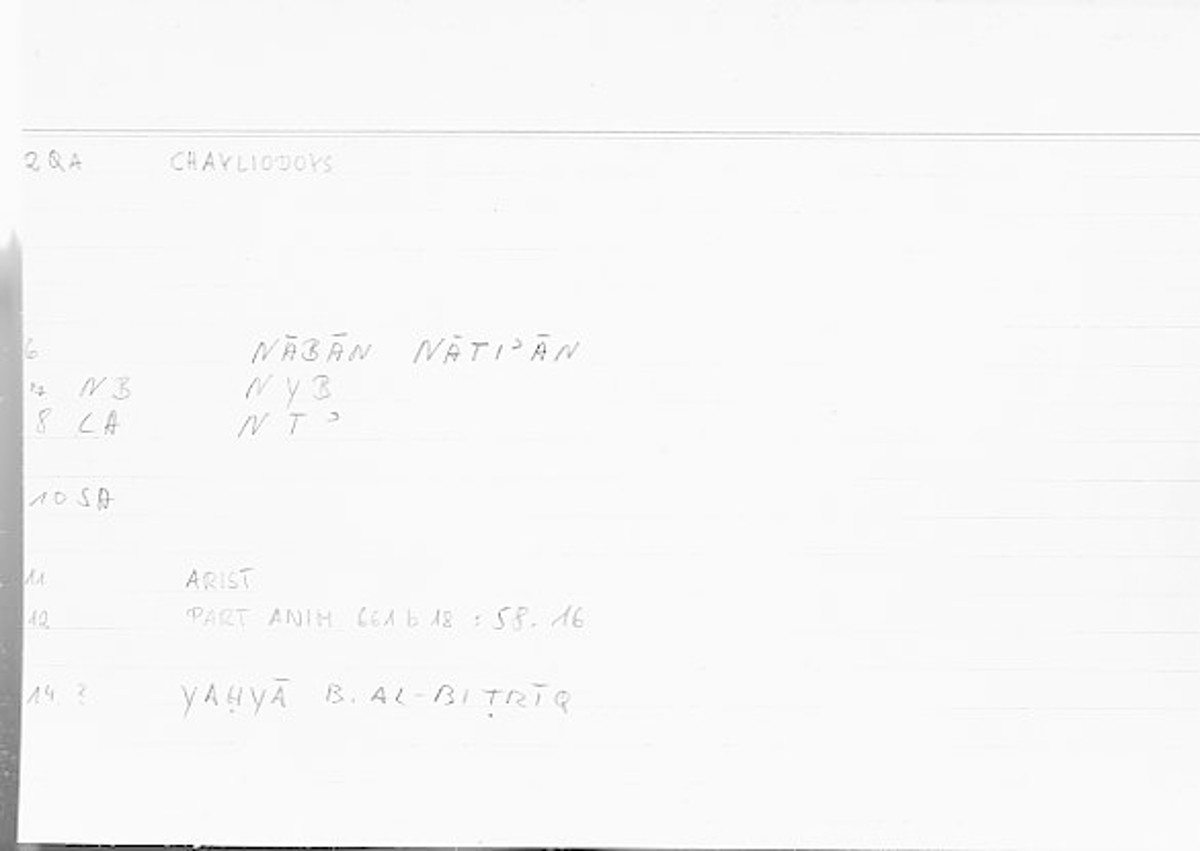 2 QA CHAYLIODOYS
6 NĀBĀN NĀTIʾĀN
7 NB NYB
8 LA NTʾ
10 SA
11 ARIST
12 PART ANIM 661 b 18 : 58. 16
14 ? YAḤYĀ B. AL-BIṬRĪQ